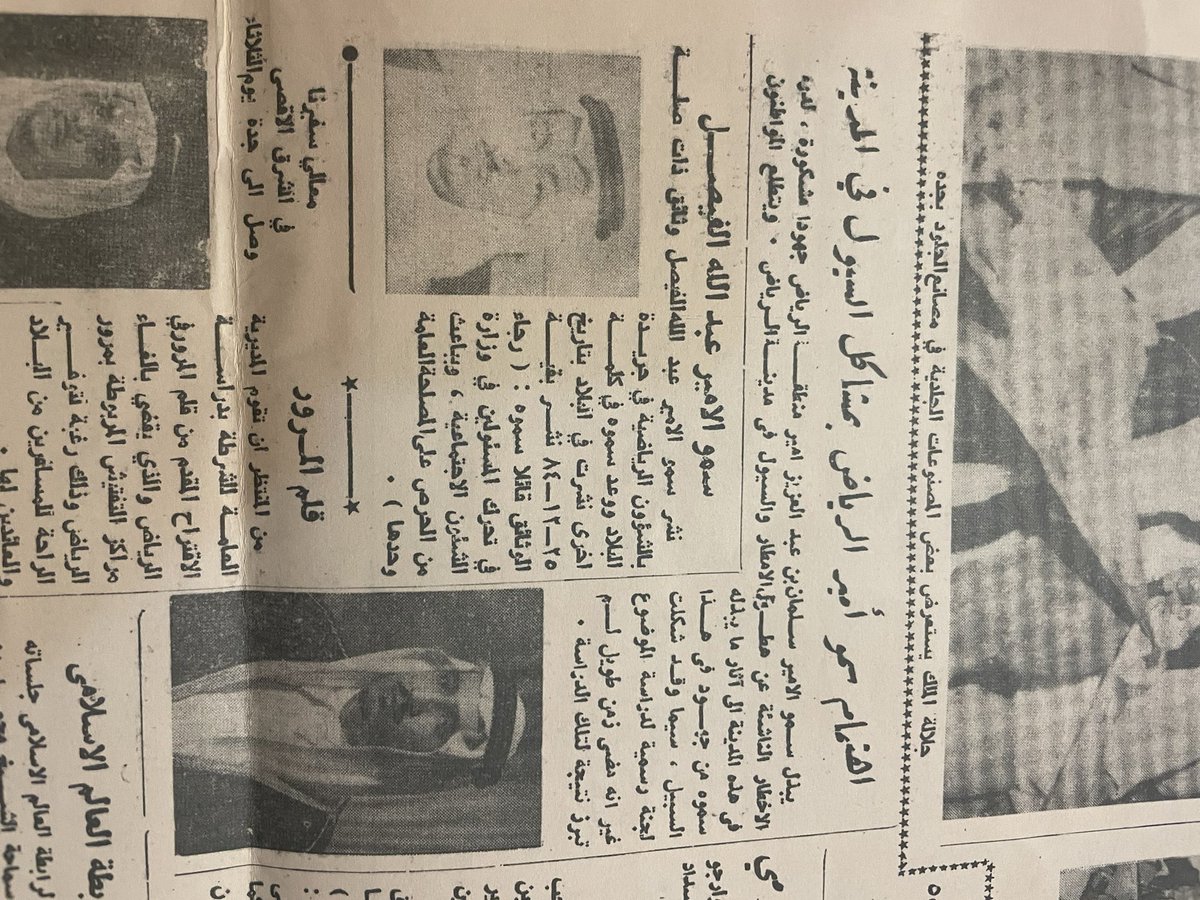 جلالة الملك يستعرض بعض المصنوعات الجلدية في مصانع الجلود بجده
اهتمام سمو أمير الرياض بمشاكل السيول في المدينة
يبذل سمو الامير سلمان بن عبد العزيز امير منطقة الرياض جهودا مشكورة ، لدرء
الاخطار الناشئة عن هطول الامطار والسيول فى مدينة الرياض . ويتطلع المواطنون
في هذه المدينة الى آثار ما يبذله
سموه من جهود فى هذا
السبيل ، سيما وقد شكلت
لجنة رسمية لدراسة الموضوع
غير انه مضى زمن طويل لم
تبرز نتيجة لتلك الدراسة .
سمو الامير عبد الله الفيصل
نشر سمو الامير عبد الله الفيصل وثائق ذات صلة
بالشؤون الرياضية في جريدة
البلاد ووعد سموه في كلمة
اخرى نشرت في البلاد بتاريخ
٢٥-١٢-٨٤ نشر بقية
الوثائق قائلا سموه : ( رجاء
في تحرك المسئولين في وزارة
الشئون الاجتماعية ، وبباعث
من الحرص على المصلحة العامة
وحدها ) .
قلم المرور
من المنتظر ان تقوم المديرية
العامة للشرطة بدراسة
الاقتراح المقدم من قلم المرور في
الرياض والذي يقضي بالغاء
مراكز التفتيش المربوطة بمرور
الرياض وذلك رغبة لتوفير
الراحة للمسافرين من البلاد
والعائدين لها .
معالي سفيرنا
في الشرق الاقصى
وصل الى جدة يوم الثلاثاء
بطة العالم الاسلامى
لرابطة العالم الاسلامي جلساته
سماحة